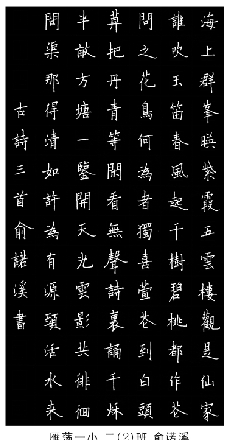 海上群峯映紫霞五雲樓觀是仙家
誰吹玉笛春風起千樹碧桃都作花
問之花鳥何為者獨喜萱花到白頭
莫把丹青等閒看無聲詩裏頌千秋
半畝方塘一鑒開天光雲影共徘徊
問渠那得清如許為有源頭活水來
古詩三首俞諾溪書
雁荡一小 二(2)班 俞诺溪